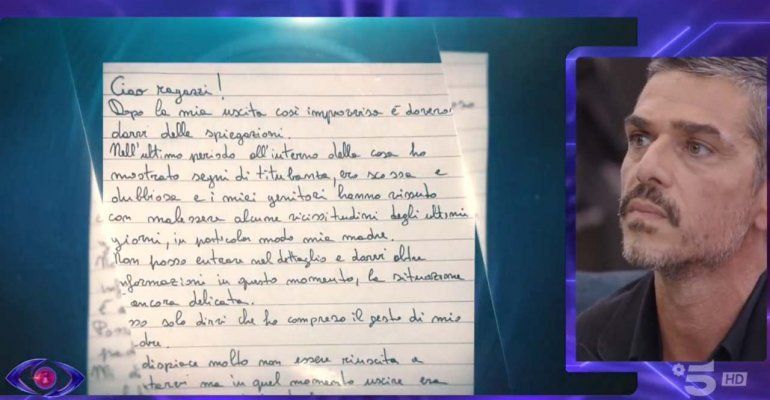 Ciao ragazzi!
Dopo la mia uscita così improvvisa è dovero
darvi delle spiegazioni.
Nell'ultimo periodo all'interno della casa ho
mostrato segni di titubanza, ero scossa e
dubbiosa e i miei genitori hanno vissuto
con malessere alcune vicissitudini degli ultimi
giorni, in particolar modo mia madre.
Non posso entrare nel dettaglio e darvi altre
nformazioni in questo momento, la situazione
ancora delicata.
sso solo dirvi che ho compreso il gesto di mio
dre.
dispiace molto non essere riuscita a
tarvi ma in quel momento uscire era
5 HD